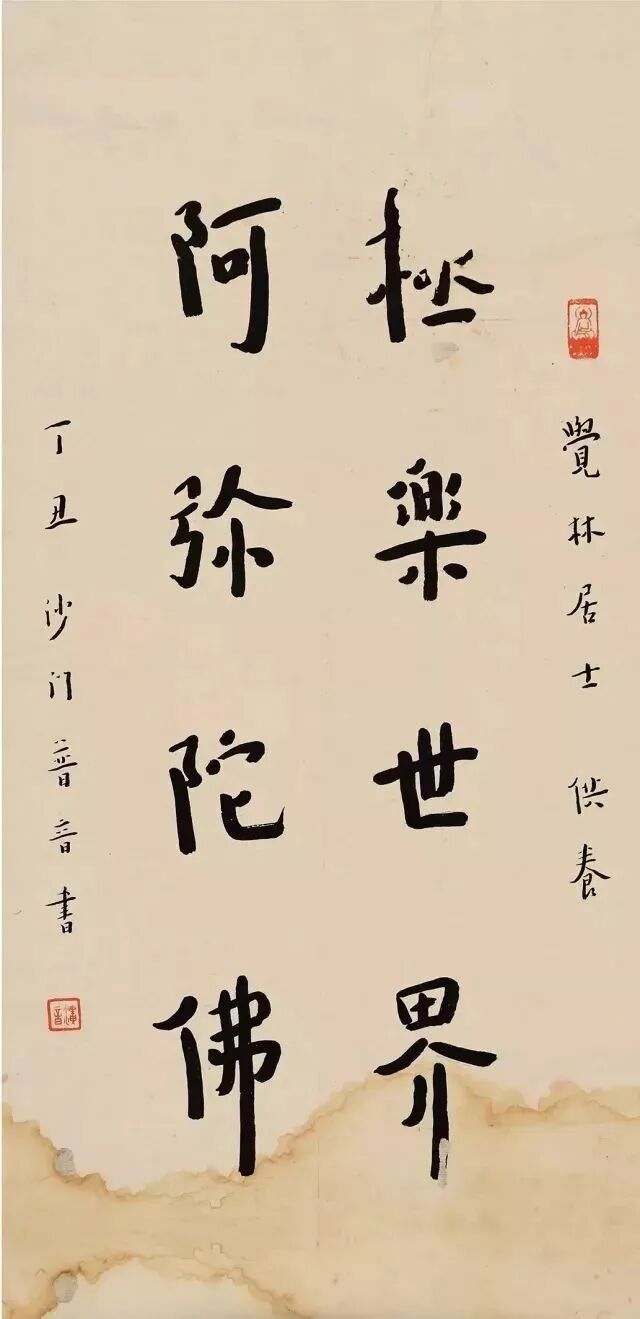 覺林居士 供養
極楽世界
阿弥陀佛
丁丑沙门普音書
演音